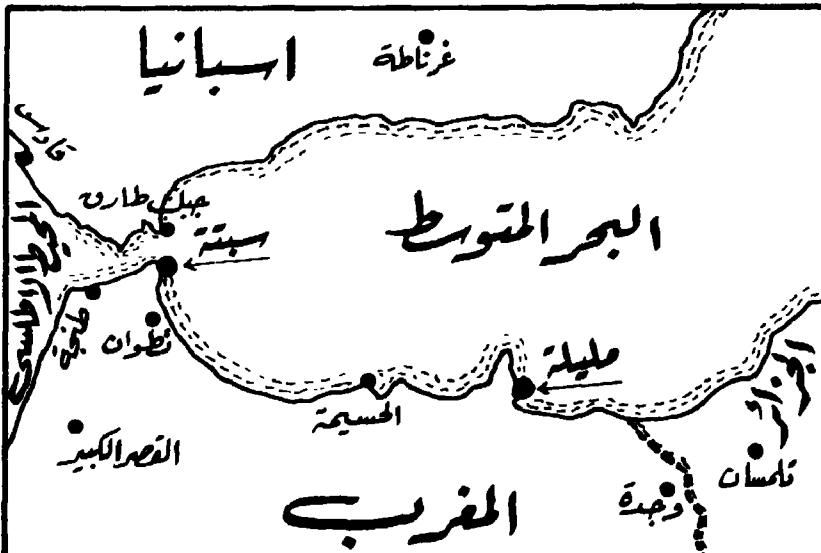 اسبانيا
غرناطة
قادس
جبل طارق
سبتة
البحر المتوسط
المحيط الاطلسي
طنجة
تطوان
مليلة
الحسيمة
الجزائر
القصر الكبير
تلمسان
وجدة
المغرب